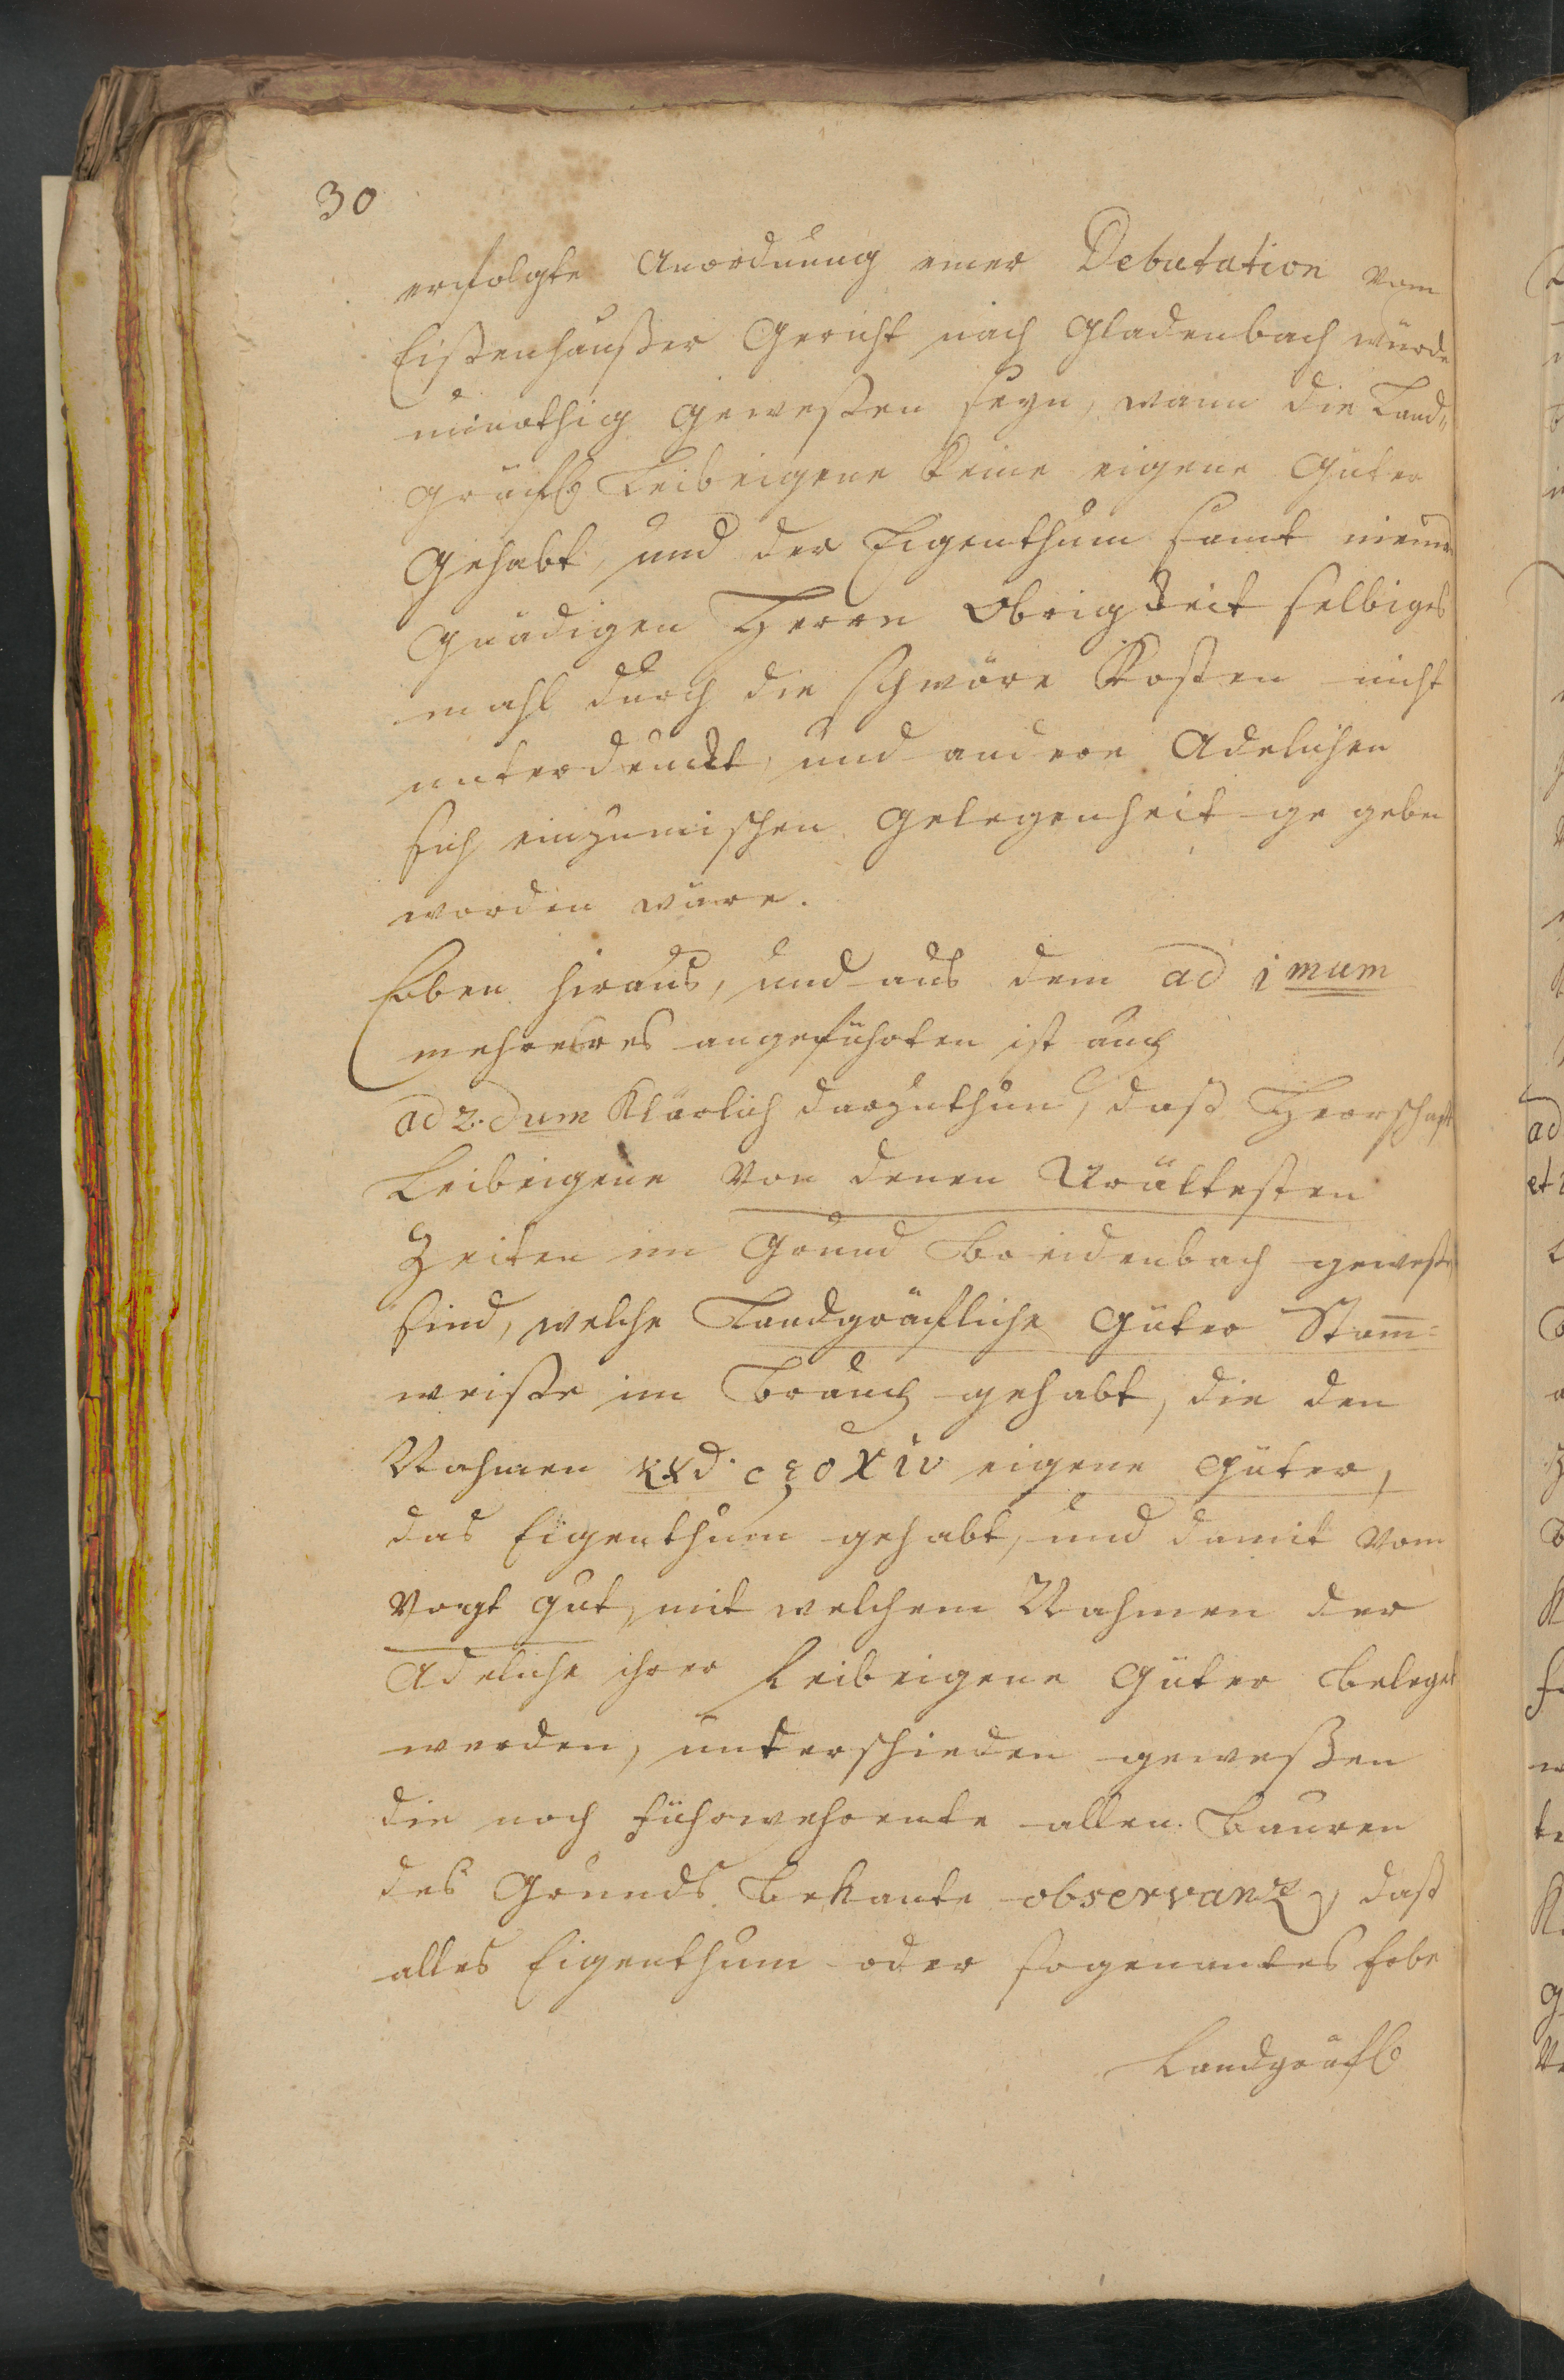 30
erfolgte Anordnung einer Debutation vom
Eißenhaußer Gericht nach Gladenbach würde
unnöthig geweßen seyn, wann die Land„
Gräfl Leibeigene keine eigene Güter
Gehabt, und der Eigenthum samt
Gnädigen Herrn Obrigkeit selbiges
mahl durch die schwöre Kosten nicht
unterdruckt, und andere Adelichen
sich einzumischen Gelegenheit ge geben
worden wäre.
Eben hiraus, und aus dem ad 1mum
mehreres angeführten ist auch
ad 2.dum Klärlich darzuthun, daß Herrschafft
Leibeigene von denen Uraltesten
Zeiten im Grund Breidenbach geweße
sind, welche Landgräfliche Güter Stam̅=
weiße im Brauch gehabt, die den
Nahmen eigene Güter,
das Eigenthum gehabt, und damit vom
Vogt gut, mit welchem Nahmen der
Adeliche ihrer Leibeigene Güter beleget
werden, unterschieden geweßen
die noch führwehrente allen Bauren
des Grunds bekante observanz, daß
alles Eigenthum oder sogenantes Erbe
Landgräfl